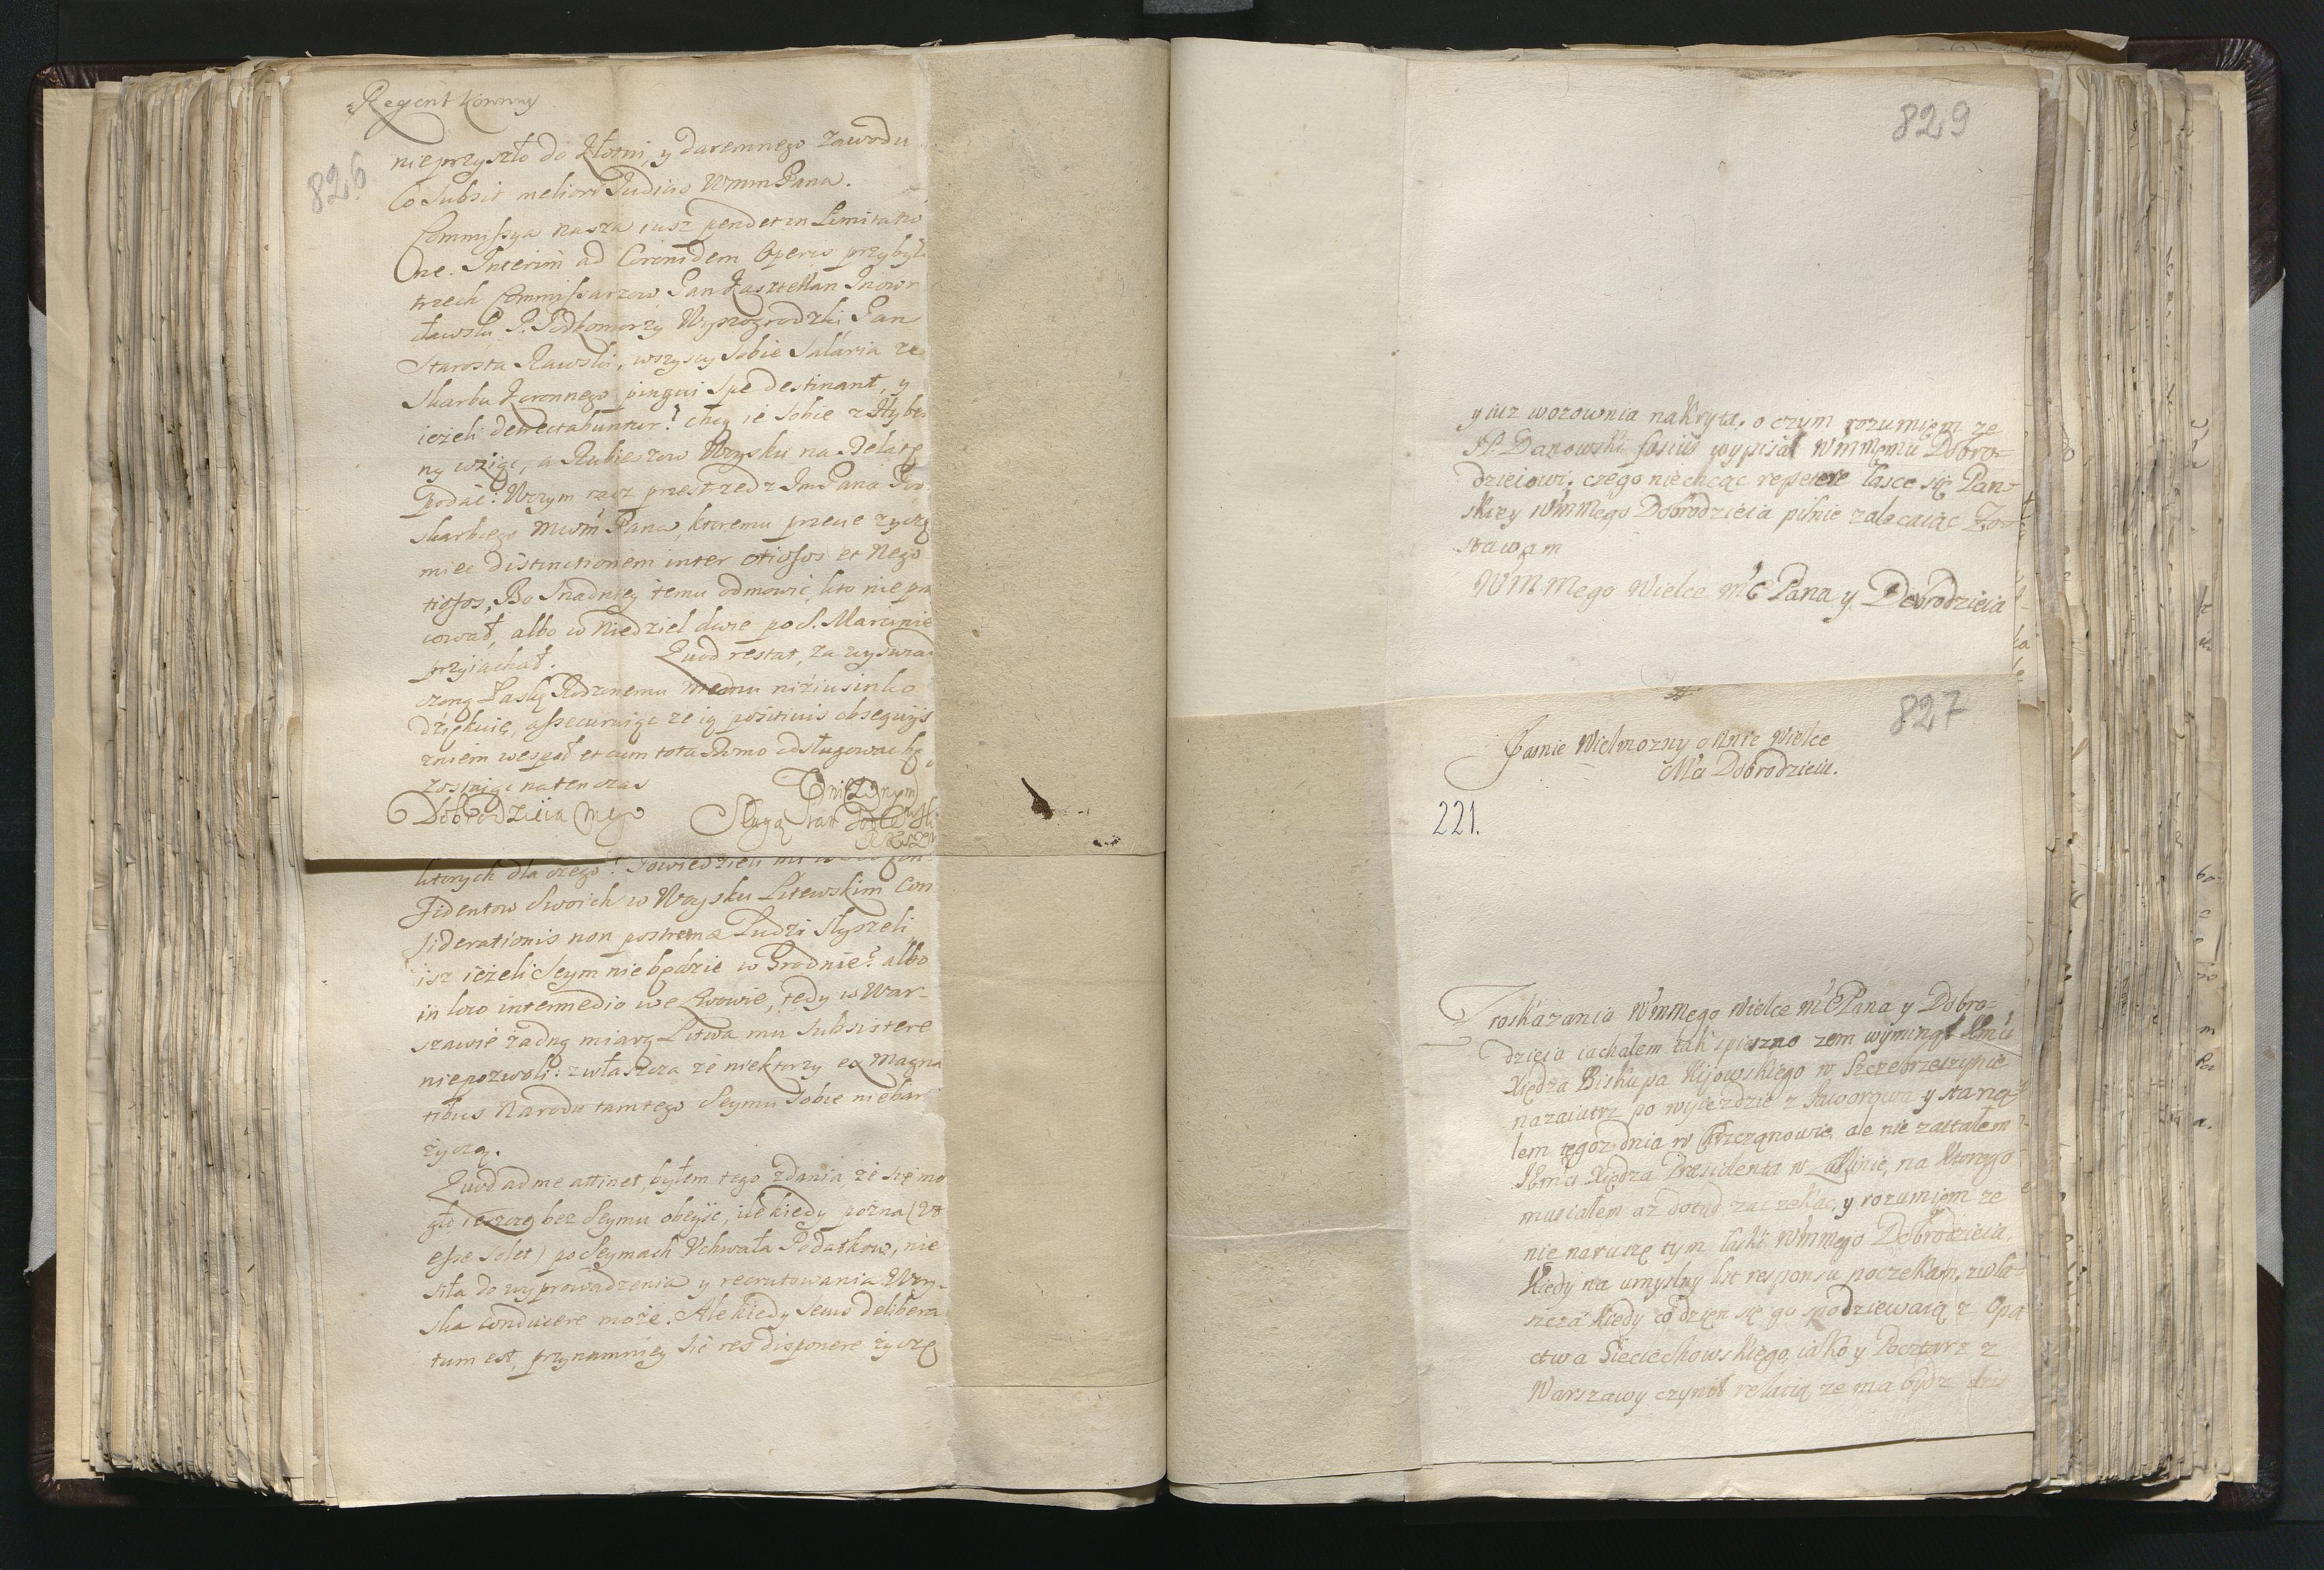 Regent Koronny
826
nieprzyszło do Kłotni, y daremnego zawodu
Co Subsit meliori Judicio WmmPana.
Commissya nasza iusz pendet in Limitatio
ne. Interim ad Coronidem Operis przybyło
trzech Commissarzow, Pan Kasztellan Inowr
cławski, P. Podkomorzy Wyszogrodzki, Pan
Starosta Rawski, wszyscy Sobie Salaria ze
Skarbu Koronnego pingui Spe destinant, y
ieżeli detrectabuntur? chcą ie Sobie z Hyber
ny wziąć, a Rubieszow Woysku na Delatę
podać: Wczym racz przestrzedz ImPana Pod
skarbiego MwmPana, ktoremu przecie życzę
miec distinctionem inter otiosos et Nego
tiosos, Bo Snadniey temu odmowić, kto nie pra
cował, albo w Niedziel dwie po S. Marcinie
przyiachał. Quod restat, za wyswiad
czoną Łaskę Rodzonemu memu niziusinko
dziękuię, assecuruiąc że ią positivis obsequijs
zniem wespoł et cum tota Domo odsługowac bę
zostaiąc natenczas
Dobrodzieia mego
Sługą
ktorych dla czego? Powiedzieli mi
fidentow Swoich w Woysku Litewskim Con
siderationis non postrema Ludzi słyszeli,
isz ieżeli Seym niebędzie w Grodnie? albo
in loco intermedio we Lwowie, tedy w War-
szawie żadną miarą Litwa mu Subsistere
niepozwoli: zwłaszcza że niektorzy ex Magna
tibus Narodu tamtego Seymu Sobie niebar
życzą.
Quod ad me attinet, byłem tego zdania, że się mo
gło ieszcze bez Seymu obeyść, ile kiedy pozna (Ut
esse solet) po Seymach Uchwała Podatkow, nie
siła do wyprowadzenia y recrutowania Woy-
ska conducere może. Ale kiedy Secus delibera
tum est, przynamniey Sic res disponere życzę
829
y iuz wozownia nakryta. o czym rozumiem ze
JP. Danowski fusius wypisał WmMemu Dobro-
dzieiowi, czego niechcąc repetere łasce się Pan-
skiey WmMego Dobrodzieia pilnie zalecaiąc Zo-
stawam
WmMego Wielce Mć Pana y Dobrodzieia
827
Jasnie Wielmozny a Mnie Wielce
Mći Dobrodzieiu.
221.
Z roskazania WmMego Wielce Mć Pana y Dobro-
dzieia iachałem tak spieszno zem wyminął Jmci
Xiędza Biskupa Kijowskiego w Szczebrzeszynie
nazaiutrz po wyiezdzie z Jaworowa y staną-
łem tegoz dnia w Krzczonowie, ale nie zastałem
JEmci Xiędza Praesidenta w Lublinie, na ktorego
musiałem az dotąd zaczekac, y rozumiem ze
nie naruszę tym łaski WmMego Dobrodzieia,
kiedy na umyslny list responsu poczekam, zwła-
szcza kiedy co dzien się go spodziewaią z Opa
ctwa Sieciechowskiego, iako y Pocztarz z
Warszawy czynił relatią ze ma bydz dzis